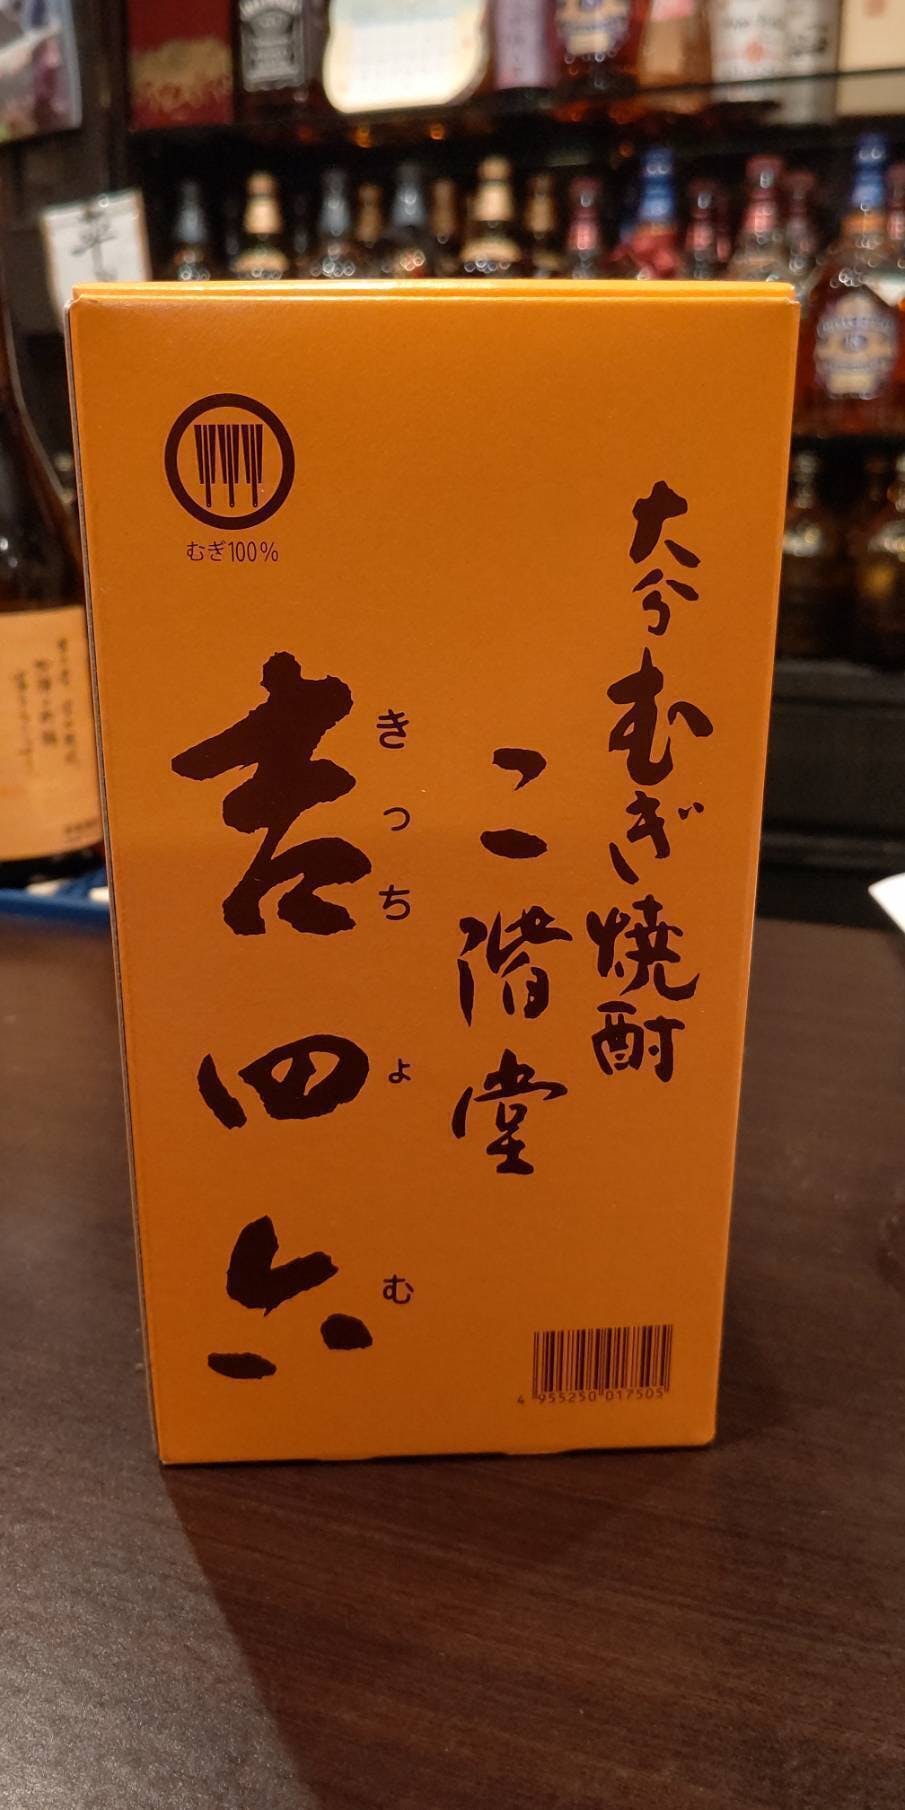 大分むぎ焼酎
二階堂
吉四六
きっちょむ
むぎ100%
4 955250 017505